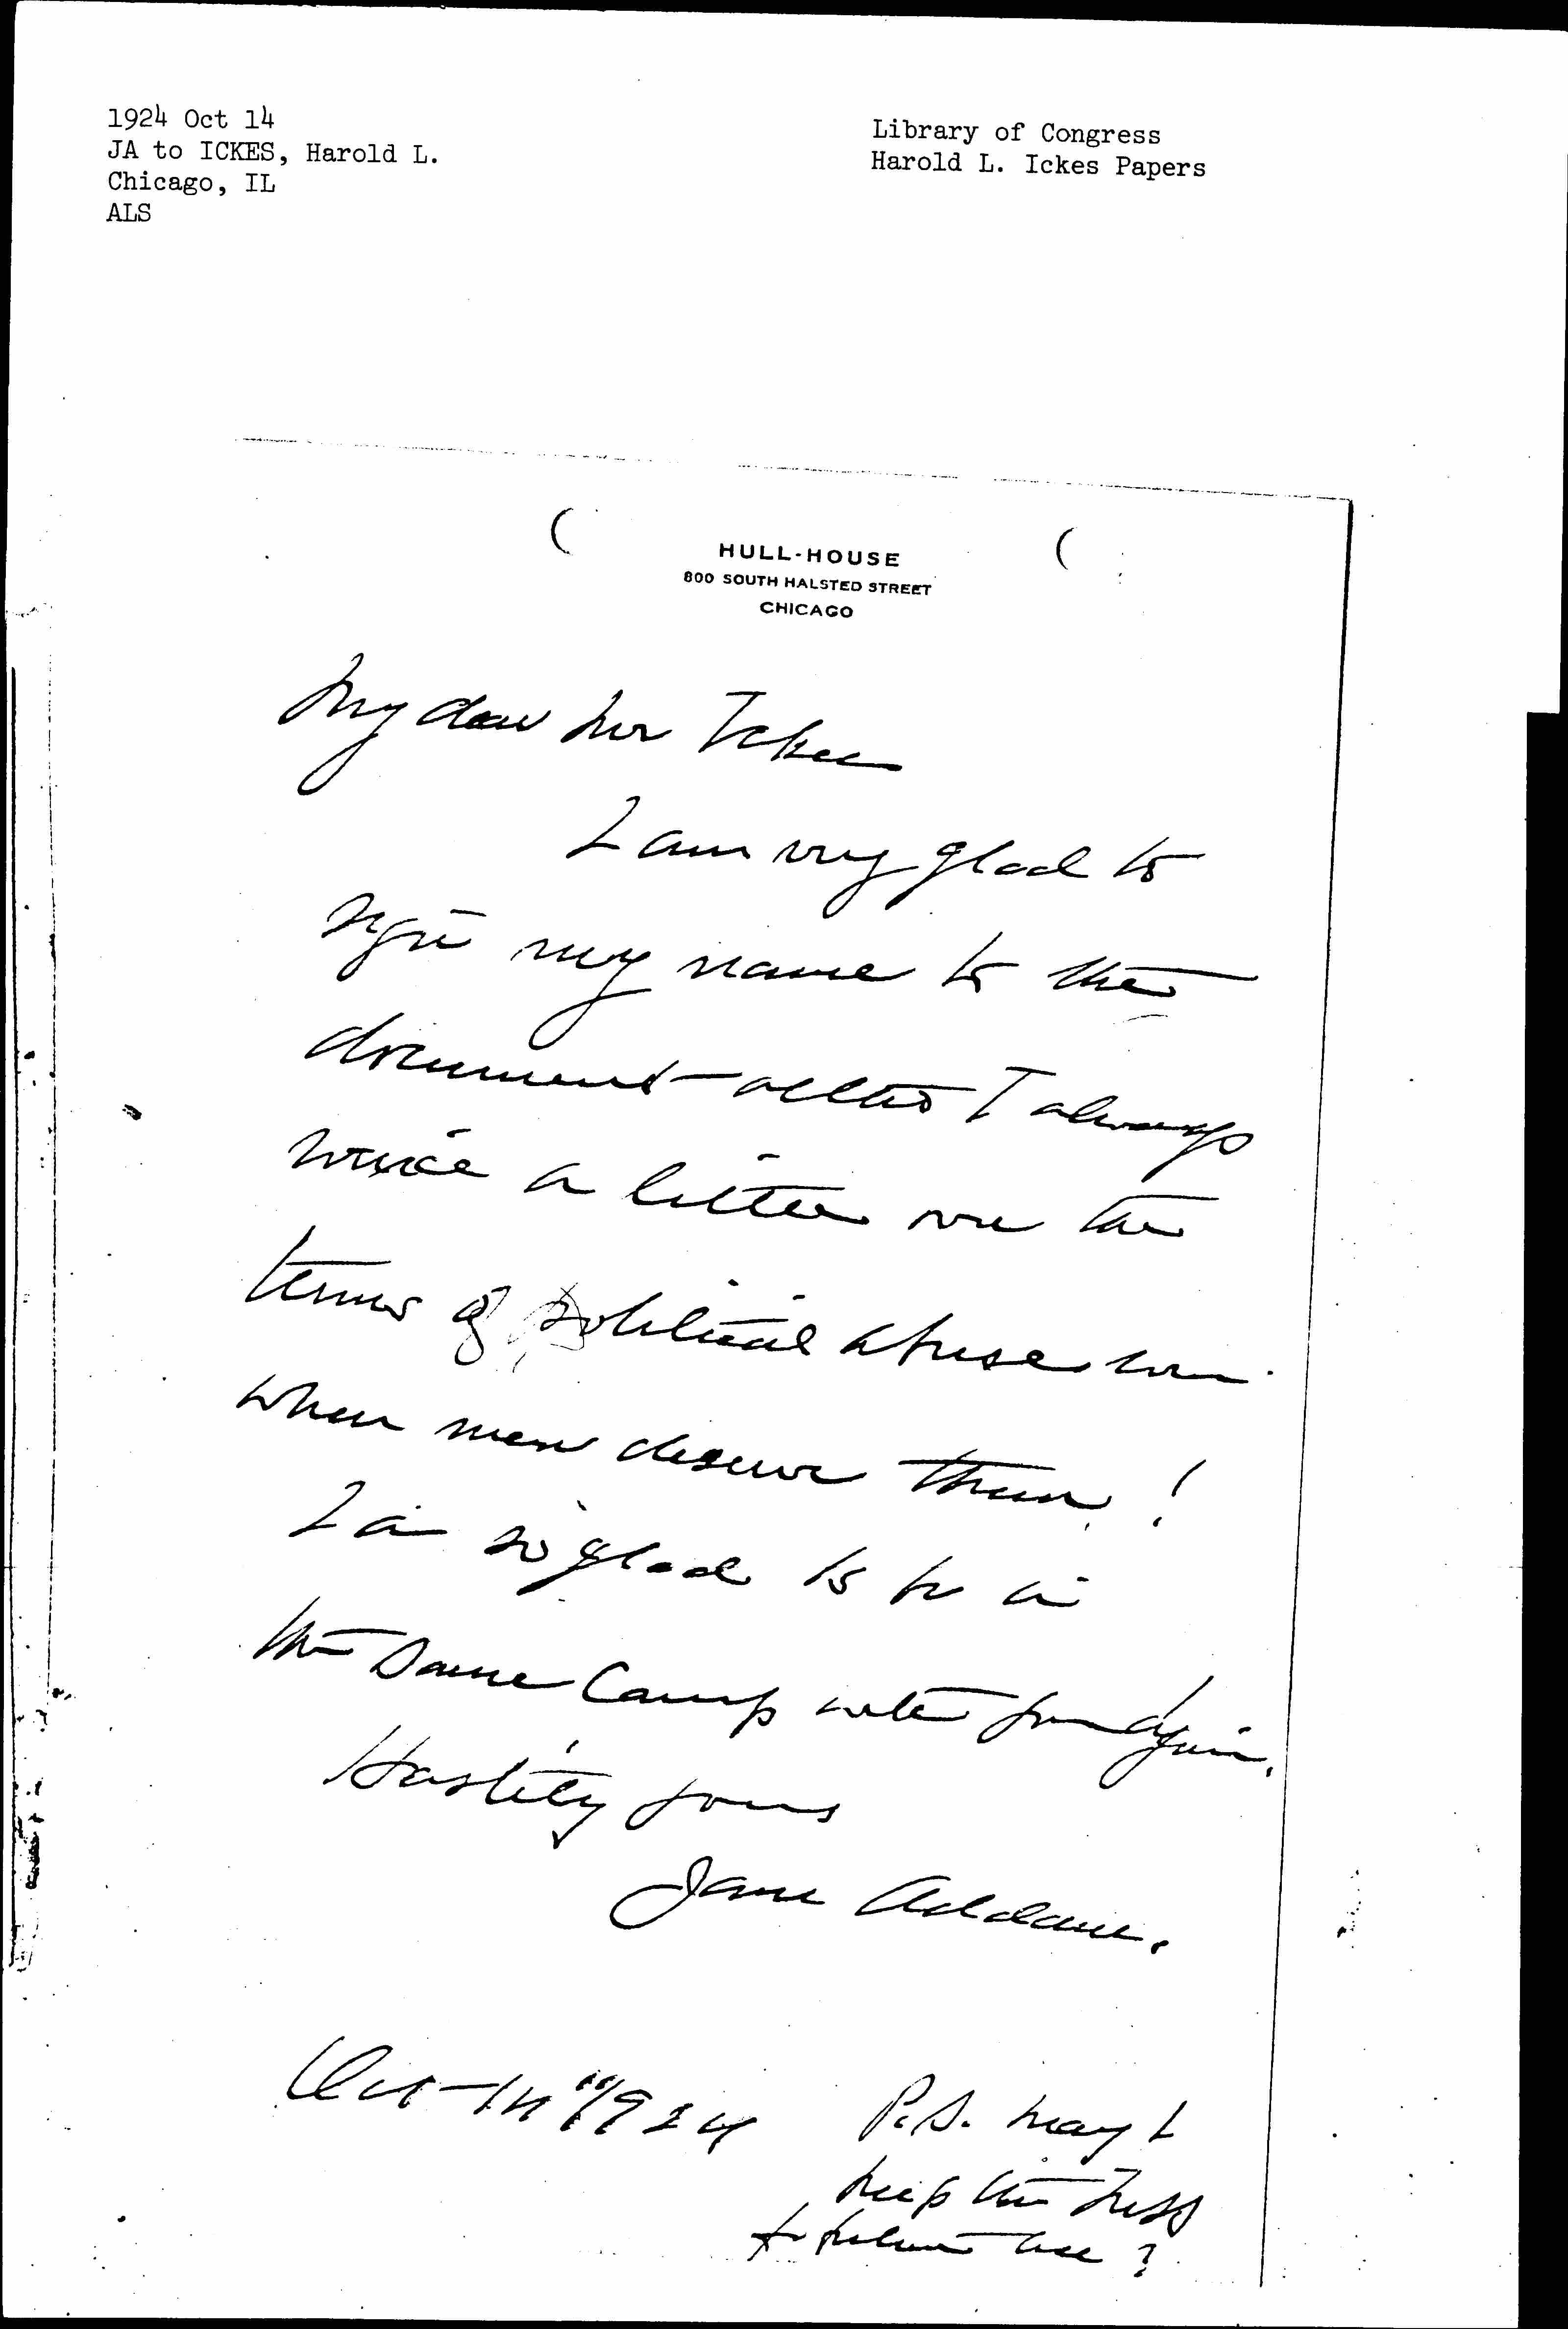 1924 Oct 14
JA to ICKES, Harold L.
Chicago, IL
ALS
Library of Congress
Harold L. Ickes Papers
HULL-HOUSE
800 SOUTH HALSTED STREET
CHICAGO
My dear Mr Ickes
I am very glad to
sign my name to the
document - altho I always
wince a little over the
terms of political abuse even
when men deserve them!
I am so glad to be in
the same Camp with you again.
Hastily yours
Jane Addams.
Oct - 14" 1924
P.S. May I
keep the
for future use?